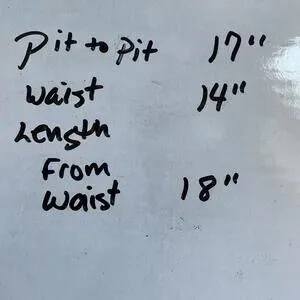 Pit to Pit 17"
Waist 14"
Length
From
Waist 18"